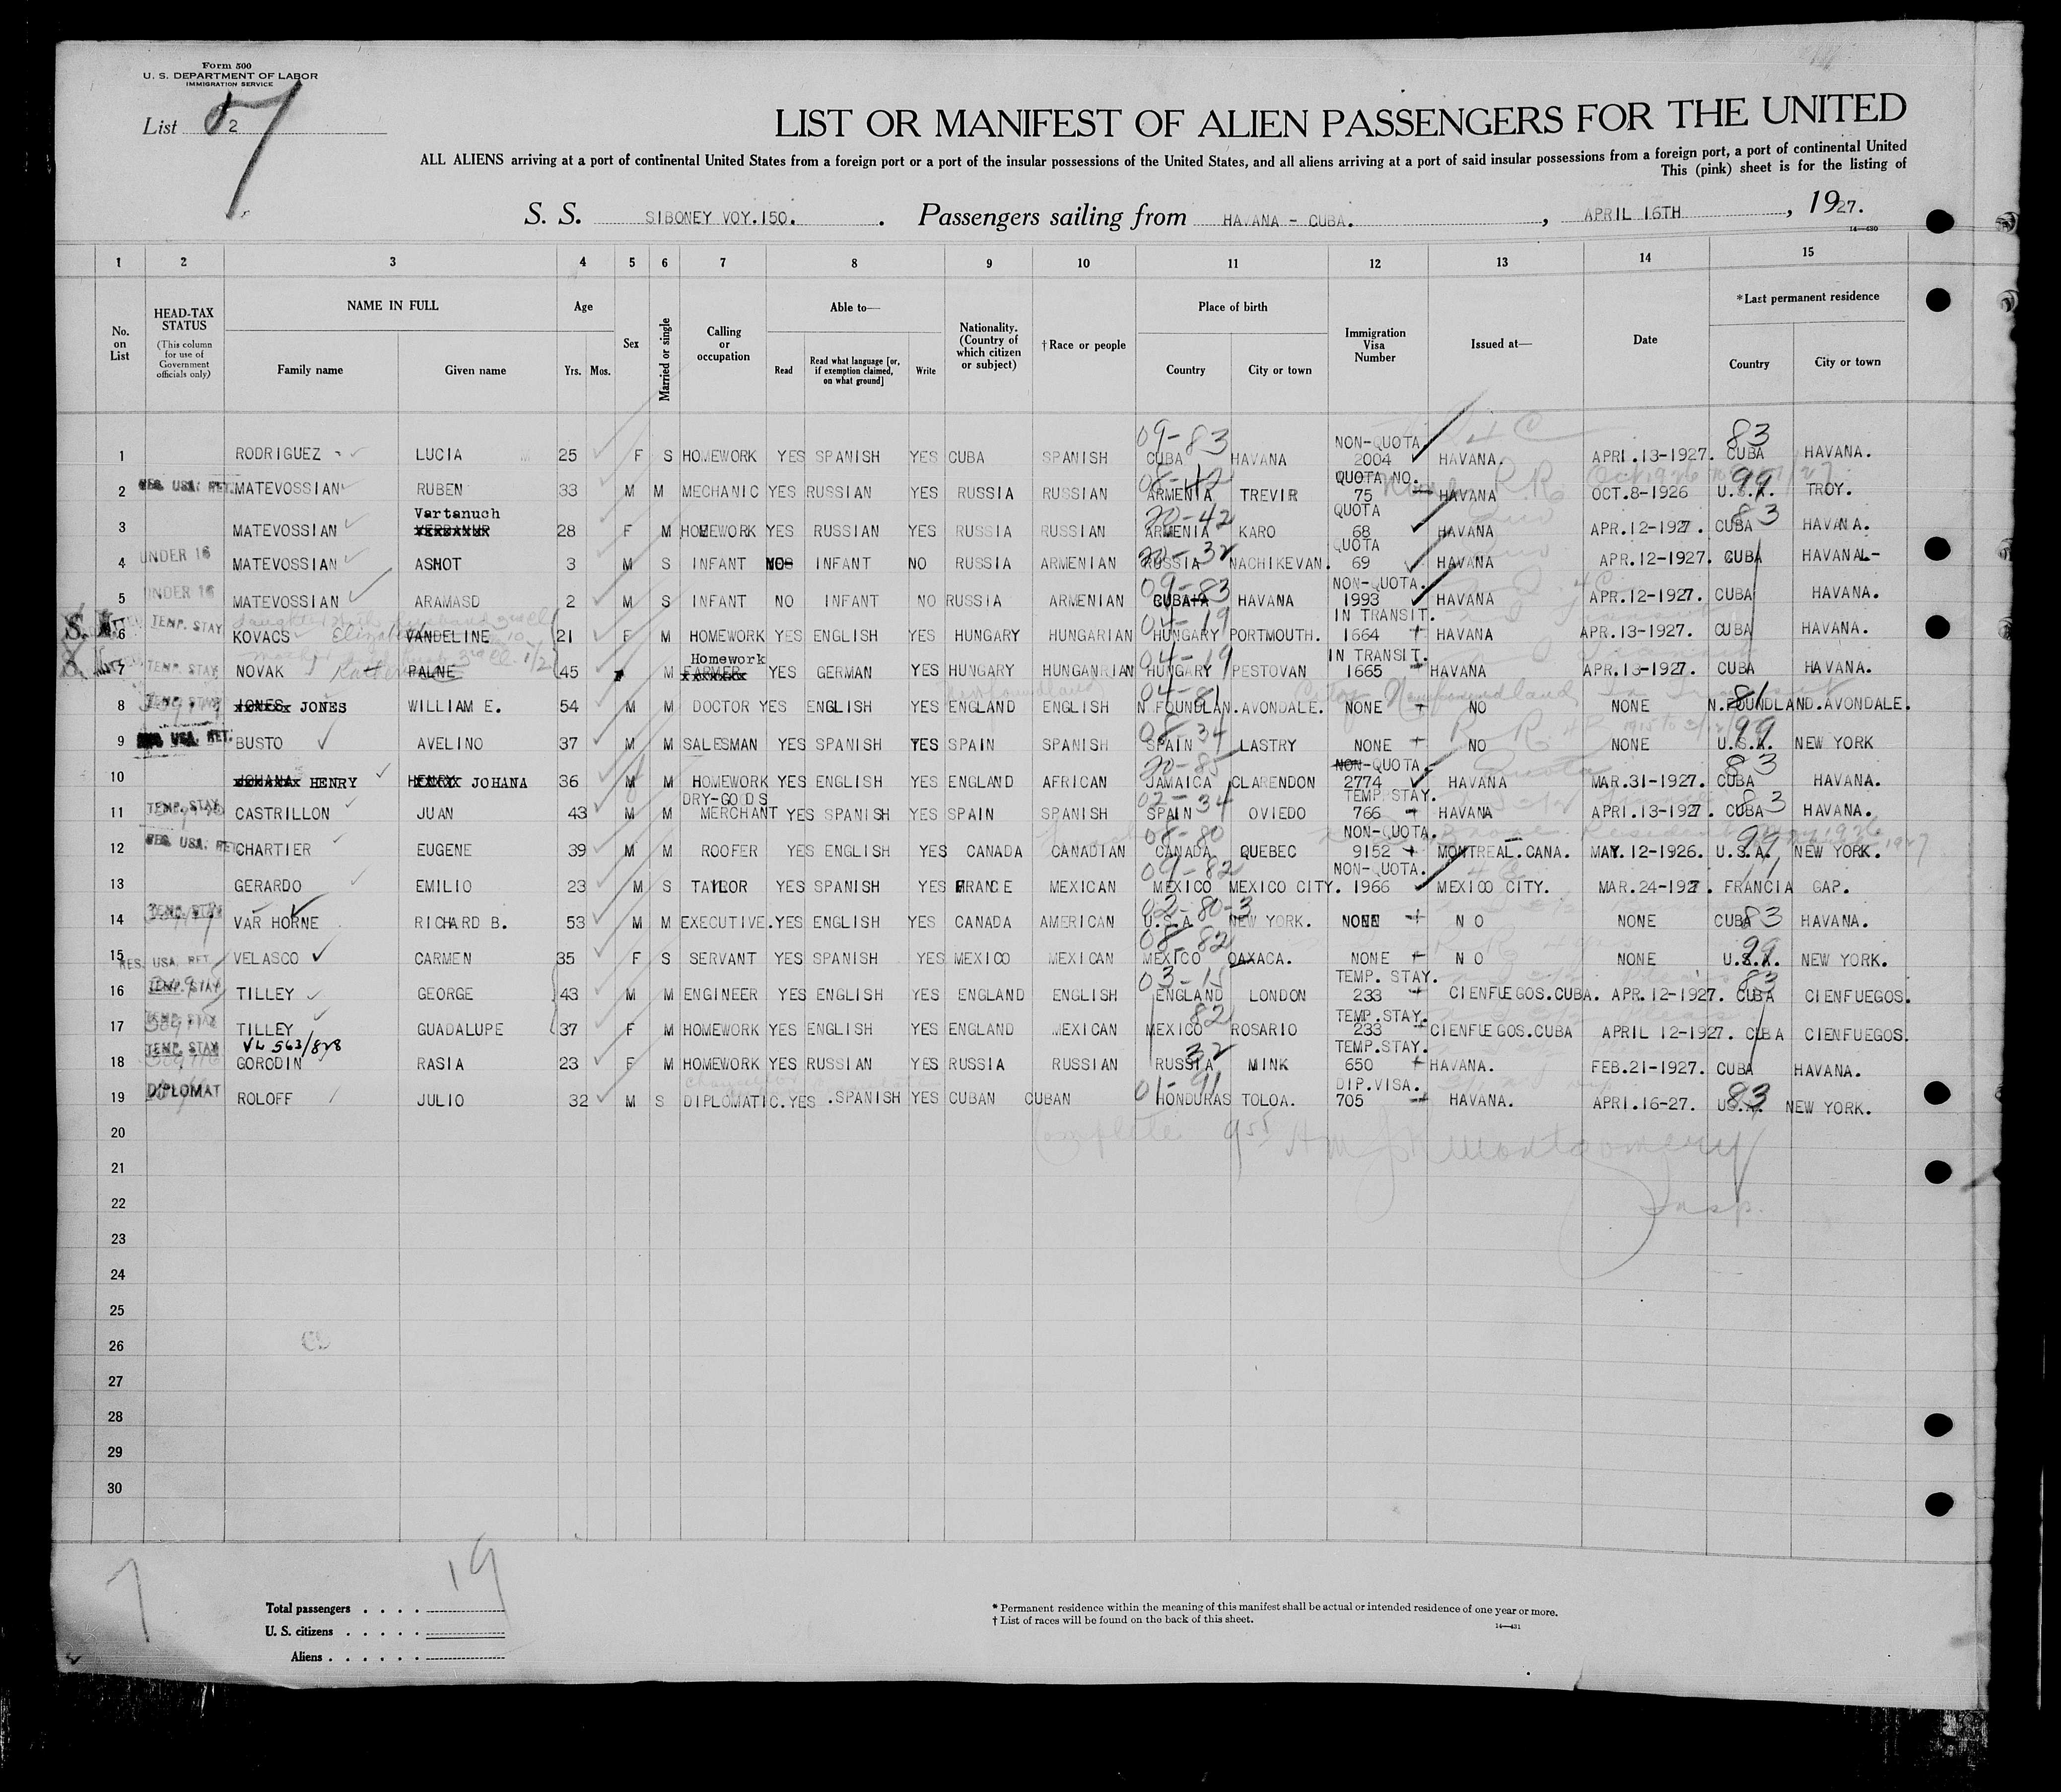 Form 500
U. S. DEPARTMENT OF LABOR
IMMIGRATION SERVICE
List 2 7
LIST OR MANIFEST OF ALIEN PASSENGERS FOR THE UNITED
ALL ALIENS arriving at a port of continental United States from a foreign port or a port of the insular possessions of the United States, and all aliens arriving at a port of said insular possessions from a foreign port, a port of continental United
This (pink) sheet is for the listing of
S. S. SIBONEY VOY.150. Passengers sailing from HAVANA - CUBA. , APRIL 16TH , 1927.
14—430
1 2 3 4 5 6 7 8 9 10 11 12 13 14 15
No. on List
HEAD-TAX STATUS
(This column for use of Government officials only)
NAME IN FULL
Family name Given name
Age
Yrs. Mos.
Sex
Married or single
Calling or occupation
Able to—
Read Read what language [or, if exemption claimed, on what ground] Write
Nationality. (Country of which citizen or subject)
†Race or people
Place of birth
Country City or town
Immigration Visa Number
Issued at—
Date
*Last permanent residence
Country City or town
09-83 NON-QUOTA 83
1 RODRIGUEZ LUCIA 25 F S HOMEWORK YES SPANISH YES CUBA SPANISH CUBA HAVANA 2004 HAVANA. APRI.13-1927. CUBA HAVANA.
08-42 QUOTA NO. 99
2 RES. USA. RET. MATEVOSSIAN RUBEN 33 M M MECHANIC YES RUSSIAN YES RUSSIA RUSSIAN ARMENIA TREVIR 75 HAVANA OCT.8-1926 U.S.A. TROY.
Vartanuch 20-42 QUOTA 83
3 MATEVOSSIAN 28 F M HOMEWORK YES RUSSIAN YES RUSSIA RUSSIAN ARMENIA KARO 68 HAVANA APR.12-1927. CUBA HAVANA.
QUOTA
4 UNDER 16 MATEVOSSIAN ASHOT 3 M S INFANT NO INFANT NO RUSSIA ARMENIAN RUSSIA NACHIKEVAN. 69 HAVANA APR.12-1927. CUBA HAVANA-
09-83 NON-QUOTA.
5 UNDER 16 MATEVOSSIAN ARAMASD 2 M S INFANT NO INFANT NO RUSSIA ARMENIAN CUBA HAVANA 1993 HAVANA APR.12-1927. CUBA HAVANA.
04-19 IN TRANSIT.
6 TEMP. STAY KOVACS VANDELINE 21 F M HOMEWORK YES ENGLISH YES HUNGARY HUNGARIAN HUNGARY PORTMOUTH. 1664 HAVANA APR.13-1927. CUBA HAVANA.
Homework 04-19 IN TRANSIT.
7 TEMP. STAY NOVAK PALNE 45 M FARMER YES GERMAN YES HUNGARY HUNGANRIAN HUNGARY PESTOVAN 1665 HAVANA APR.13-1927. CUBA HAVANA.
04-81 81
8 TEMP. STAY JONES JONES WILLIAM E. 54 M M DOCTOR YES ENGLISH YES ENGLAND ENGLISH N.FOUNDLAN. AVONDALE. NONE NO NONE N.FOUNDLAND. AVONDALE.
08-34 99
9 RES. USA. RET. BUSTO AVELINO 37 M M SALESMAN YES SPANISH YES SPAIN SPANISH SPAIN LASTRY NONE NO NONE U.S.A. NEW YORK
20-85 NON-QUOTA. 83
10 JOHANA HENRY HENRY JOHANA 36 M M HOMEWORK YES ENGLISH YES ENGLAND AFRICAN JAMAICA CLARENDON 2774 HAVANA MAR.31-1927. CUBA HAVANA.
DRY-GOODS 02-34 TEMP.STAY. 83
11 TEMP. STAY CASTRILLON JUAN 43 M M MERCHANT YES SPANISH YES SPAIN SPANISH SPAIN OVIEDO 766 HAVANA APRI.13-1927. CUBA HAVANA.
08-80 NON-QUOTA. 99
12 RES. USA. RET. CHARTIER EUGENE 39 M M ROOFER YES ENGLISH YES CANADA CANADIAN CANADA QUEBEC 9152 MONTREAL.CANA. MAY.12-1926. U.S.A. NEW YORK.
09-82 NON-QUOTA.
13 GERARDO EMILIO 23 M S TAYLOR YES SPANISH YES FRANCE MEXICAN MEXICO MEXICO CITY. 1966 MEXICO CITY. MAR.24-1927. FRANCIA GAP.
02-80-3 83
14 TEMP. STAY VAR HORNE RICHARD B. 53 M M EXECUTIVE. YES ENGLISH YES CANADA AMERICAN U.S.A. NEW YORK. NONE NO NONE CUBA HAVANA.
08-82 99
15 RES. USA. RET. VELASCO CARMEN 35 F S SERVANT YES SPANISH YES MEXICO MEXICAN MEXICO OAXACA. NONE NO NONE U.S.A. NEW YORK.
03-15 TEMP. STAY. 83
16 TEMP. STAY TILLEY GEORGE 43 M M ENGINEER YES ENGLISH YES ENGLAND ENGLISH ENGLAND LONDON 233 CIENFUEGOS.CUBA. APR.12-1927. CUBA CIENFUEGOS.
82 TEMP.STAY.
17 TEMP. STAY TILLEY GUADALUPE 37 F M HOMEWORK YES ENGLISH YES ENGLAND MEXICAN MEXICO ROSARIO 233 CIENFUEGOS.CUBA APRIL 12-1927. CUBA CIENFUEGOS.
VL 563/828 32 TEMP.STAY.
18 TEMP. STAY GORODIN RASIA 23 F M HOMEWORK YES RUSSIAN YES RUSSIA RUSSIAN RUSSIA MINK 650 HAVANA. FEB.21-1927. CUBA HAVANA.
01-91 DIP.VISA. 83
19 DIPLOMAT ROLOFF JULIO 32 M S DIPLOMATIC. YES .SPANISH YES CUBAN CUBAN HONDURAS TOLOA. 705 HAVANA. APRI.16-27. U.S.A. NEW YORK.
20 Complete 9 55 AM Montgomery
21
22 Insp.
23
24
25
26
27
28
29
30
7 19
Total passengers . . . .
U. S. citizens . . . . .
Aliens . . . . . .
* Permanent residence within the meaning of this manifest shall be actual or intended residence of one year or more.
† List of races will be found on the back of this sheet.
14—431